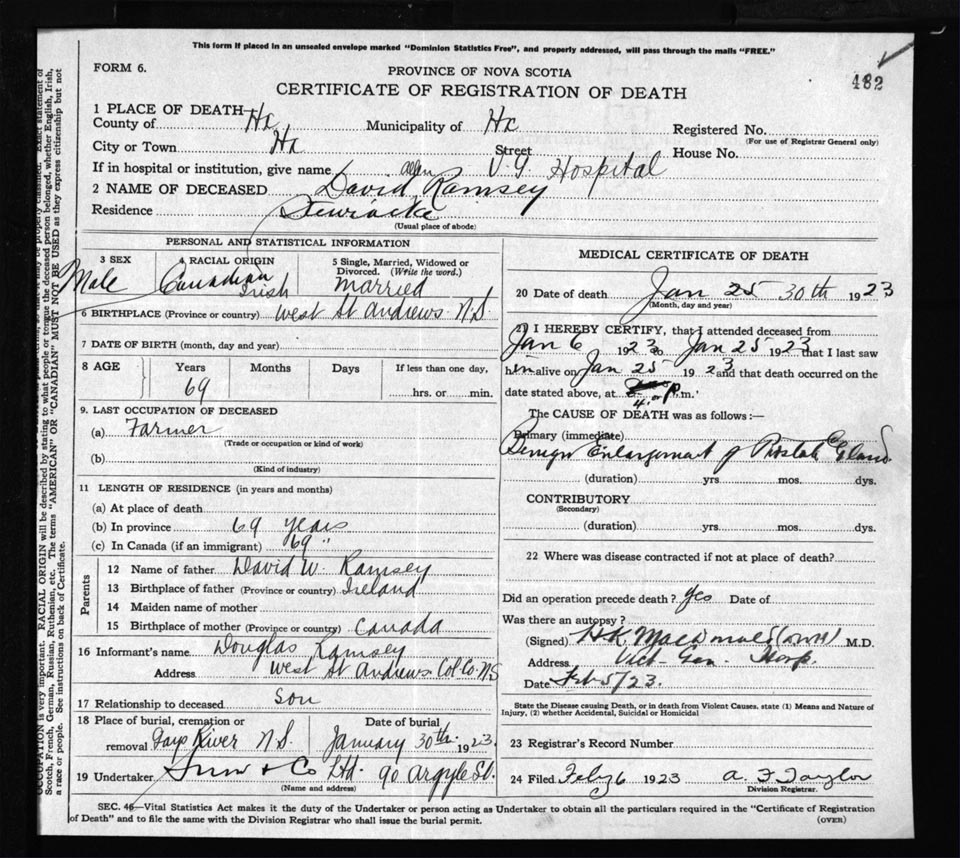 This form if placed in an unsealed envelope marked "Dominion Statistics Free", and properly addressed, will pass through the mails "FREE."
FORM 6.
PROVINCE OF NOVA SCOTIA
482
CERTIFICATE OF REGISTRATION OF DEATH
1 PLACE OF DEATH
County of Hx Municipality of Hx Registered No.
(For use of Registrar General only)
City or Town Hx Street House No.
If in hospital or institution, give name V.G. Hospital
Allen
2 NAME OF DECEASED David Ramsey
Residence Stewiacke
(Usual place of abode)
PERSONAL AND STATISTICAL INFORMATION
3 SEX Male
4 RACIAL ORIGIN Canadian Irish
5 Single, Married, Widowed or Divorced. (Write the word.) Married
6 BIRTHPLACE (Province or country) West St Andrews N.S.
7 DATE OF BIRTH (month, day and year)
8 AGE Years Months Days If less than one day,
69 hrs. or min.
9. LAST OCCUPATION OF DECEASED
(a) Farmer
(Trade or occupation or kind of work)
(b)
(Kind of industry)
11 LENGTH OF RESIDENCE (in years and months)
(a) At place of death
(b) In province 69 years
(c) In Canada (if an immigrant) 69 "
Parents
12 Name of father David W. Ramsey
13 Birthplace of father (Province or country) Ireland
14 Maiden name of mother
15 Birthplace of mother (Province or country) Canada
16 Informant's name Douglas Ramsey
Address West St Andrews Col Co N.S
17 Relationship to deceased Son
18 Place of burial, cremation or removal Gays River N.S.
Date of burial January 30th 1923
19 Undertaker Snow & Co Ltd. 90 Argyle St.
(Name and address)
MEDICAL CERTIFICATE OF DEATH
20 Date of death Jan 25 30th 1923
(Month, day and year)
21 I HEREBY CERTIFY, that I attended deceased from
Jan 6 1923 to Jan 25 1923 that I last saw
him alive on Jan 25 1923 and that death occurred on the
date stated above, at 4. P.m.
The CAUSE OF DEATH was as follows:—
Primary (immediate)
Benign Enlargement of Prostate Gland
(duration) yrs. mos. dys.
CONTRIBUTORY
(Secondary)
(duration) yrs. mos. dys.
22 Where was disease contracted if not at place of death?
Did an operation precede death? Yes Date of
Was there an autopsy?
(Signed) H.K. MacDonald M.D.
Address Vict. Gen. Hosp.
Date Feb 5/23.
State the Disease causing Death, or in death from Violent Causes, state (1) Means and Nature of
Injury, (2) whether Accidental, Suicidal or Homicidal
23 Registrar's Record Number
24 Filed Feby 6 1923 A. F Taylor
Division Registrar.
SEC. 46—Vital Statistics Act makes it the duty of the Undertaker or person acting as Undertaker to obtain all the particulars required in the "Certificate of Registration
of Death" and to file the same with the Division Registrar who shall issue the burial permit. (OVER)
OCCUPATION is very important. RACIAL ORIGIN will be described by stating to what people or tongue the deceased person belonged, whether English, Irish,
Scotch, French, German, Russian, Ruthenian, etc. The terms "AMERICAN" OR "CANADIAN" MUST NOT BE USED as they express citizenship but not
a race or people. See instructions on back of Certificate.